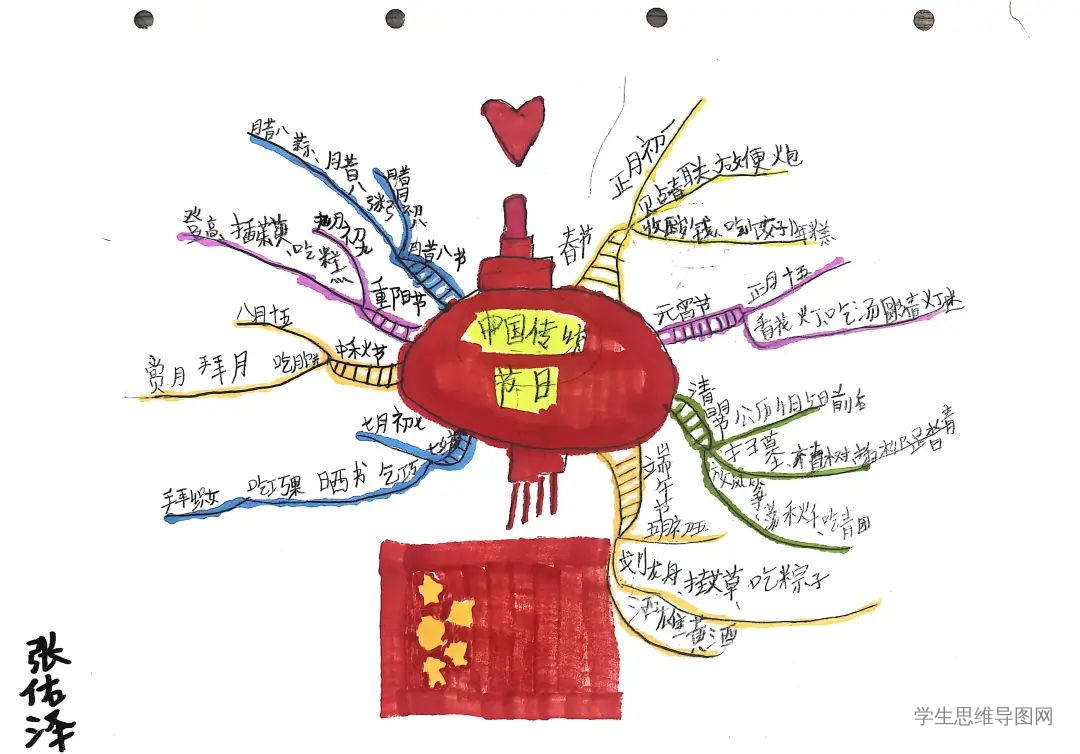 中国传统
节日
春节
正月初一
贴春联、放鞭炮
收压岁钱、吃饺子年糕
元宵节
正月十五
看花灯、吃汤圆、猜灯迷
清明节
公历4月5日前后
扫墓、植树
放风筝
荡秋千、吃青团
端午节
五月初五
划龙舟、挂艾草、吃粽子
洒雄黄酒
七月初七
乞巧
晒书
吃巧果
拜织女
中秋节
八月十五
吃月饼
拜月
赏月
重阳节
九月初九
登高、插茱萸
、吃糕
腊八节
腊月初八
腊八蒜、腊八粥
张佑泽
学生思维导图网